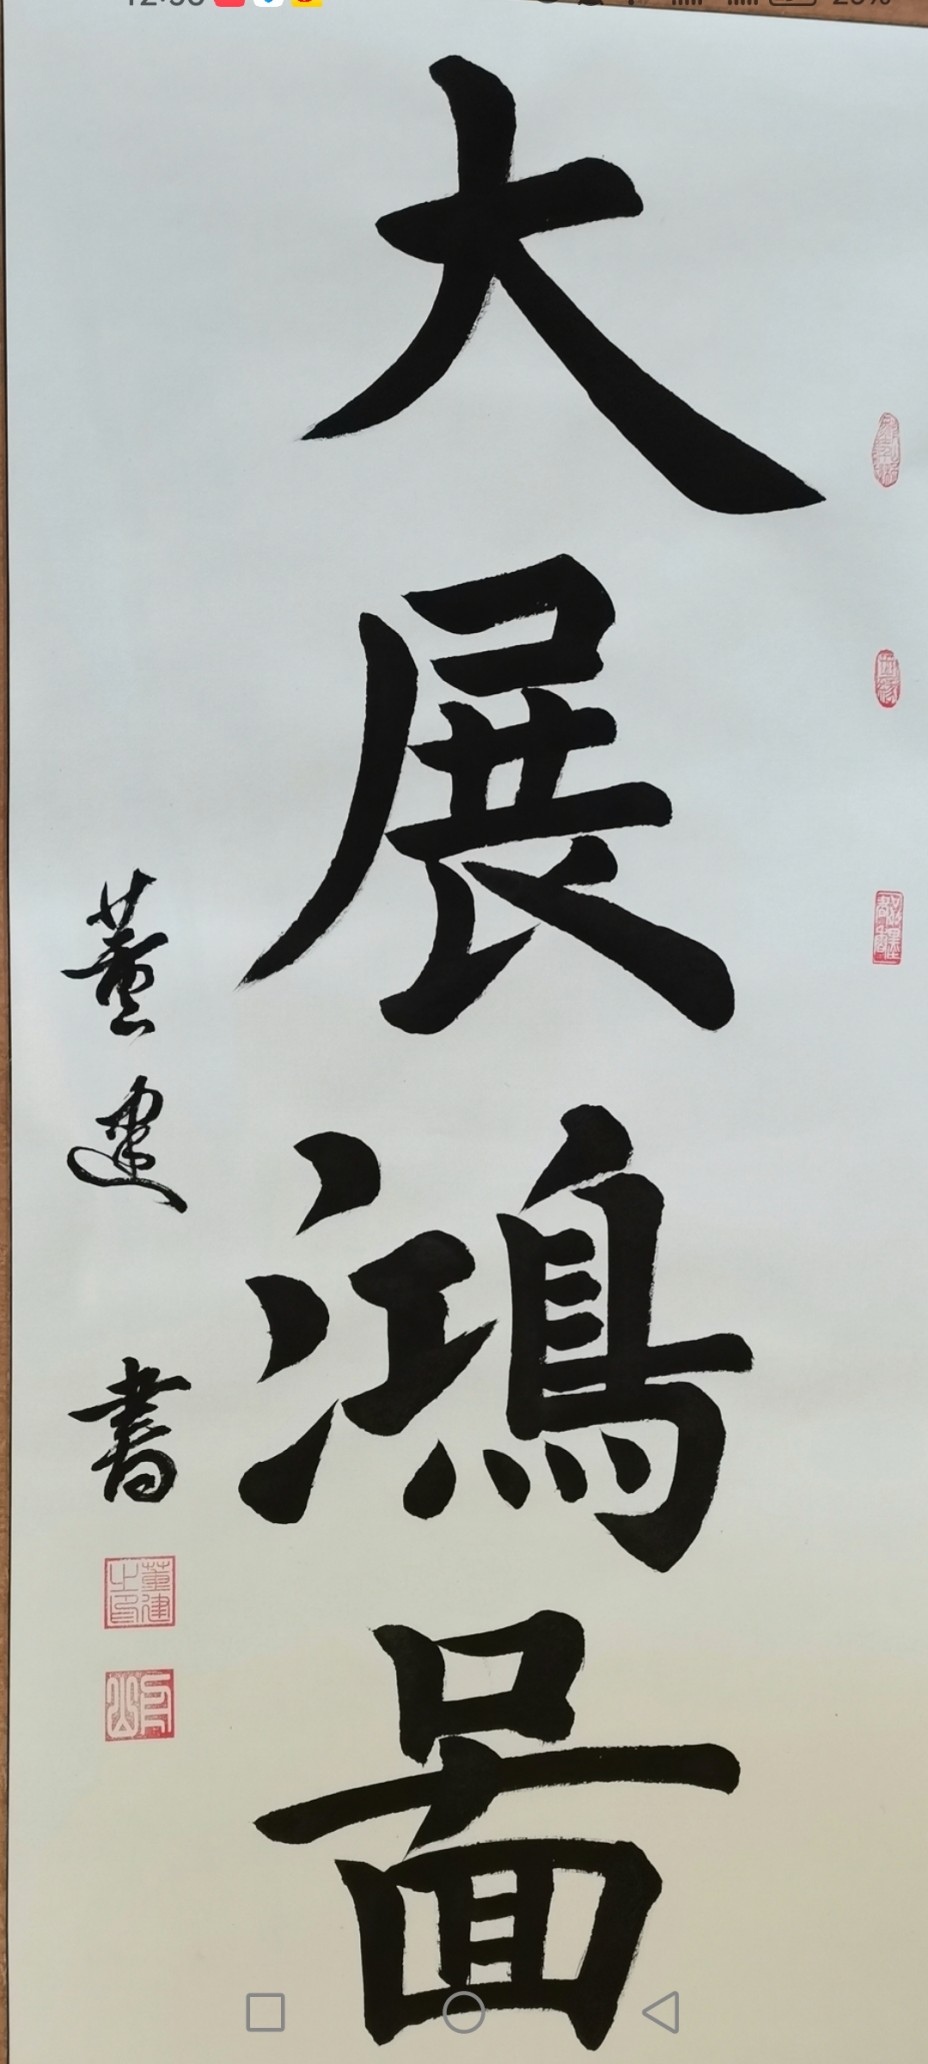 大展鴻啚
董建書
董建之印